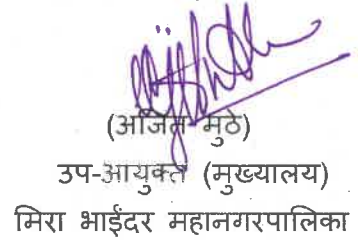 (अजित मुठे)
उप-आयुक्त (मुख्यालय)
मिरा भाईंदर महानगरपालिका